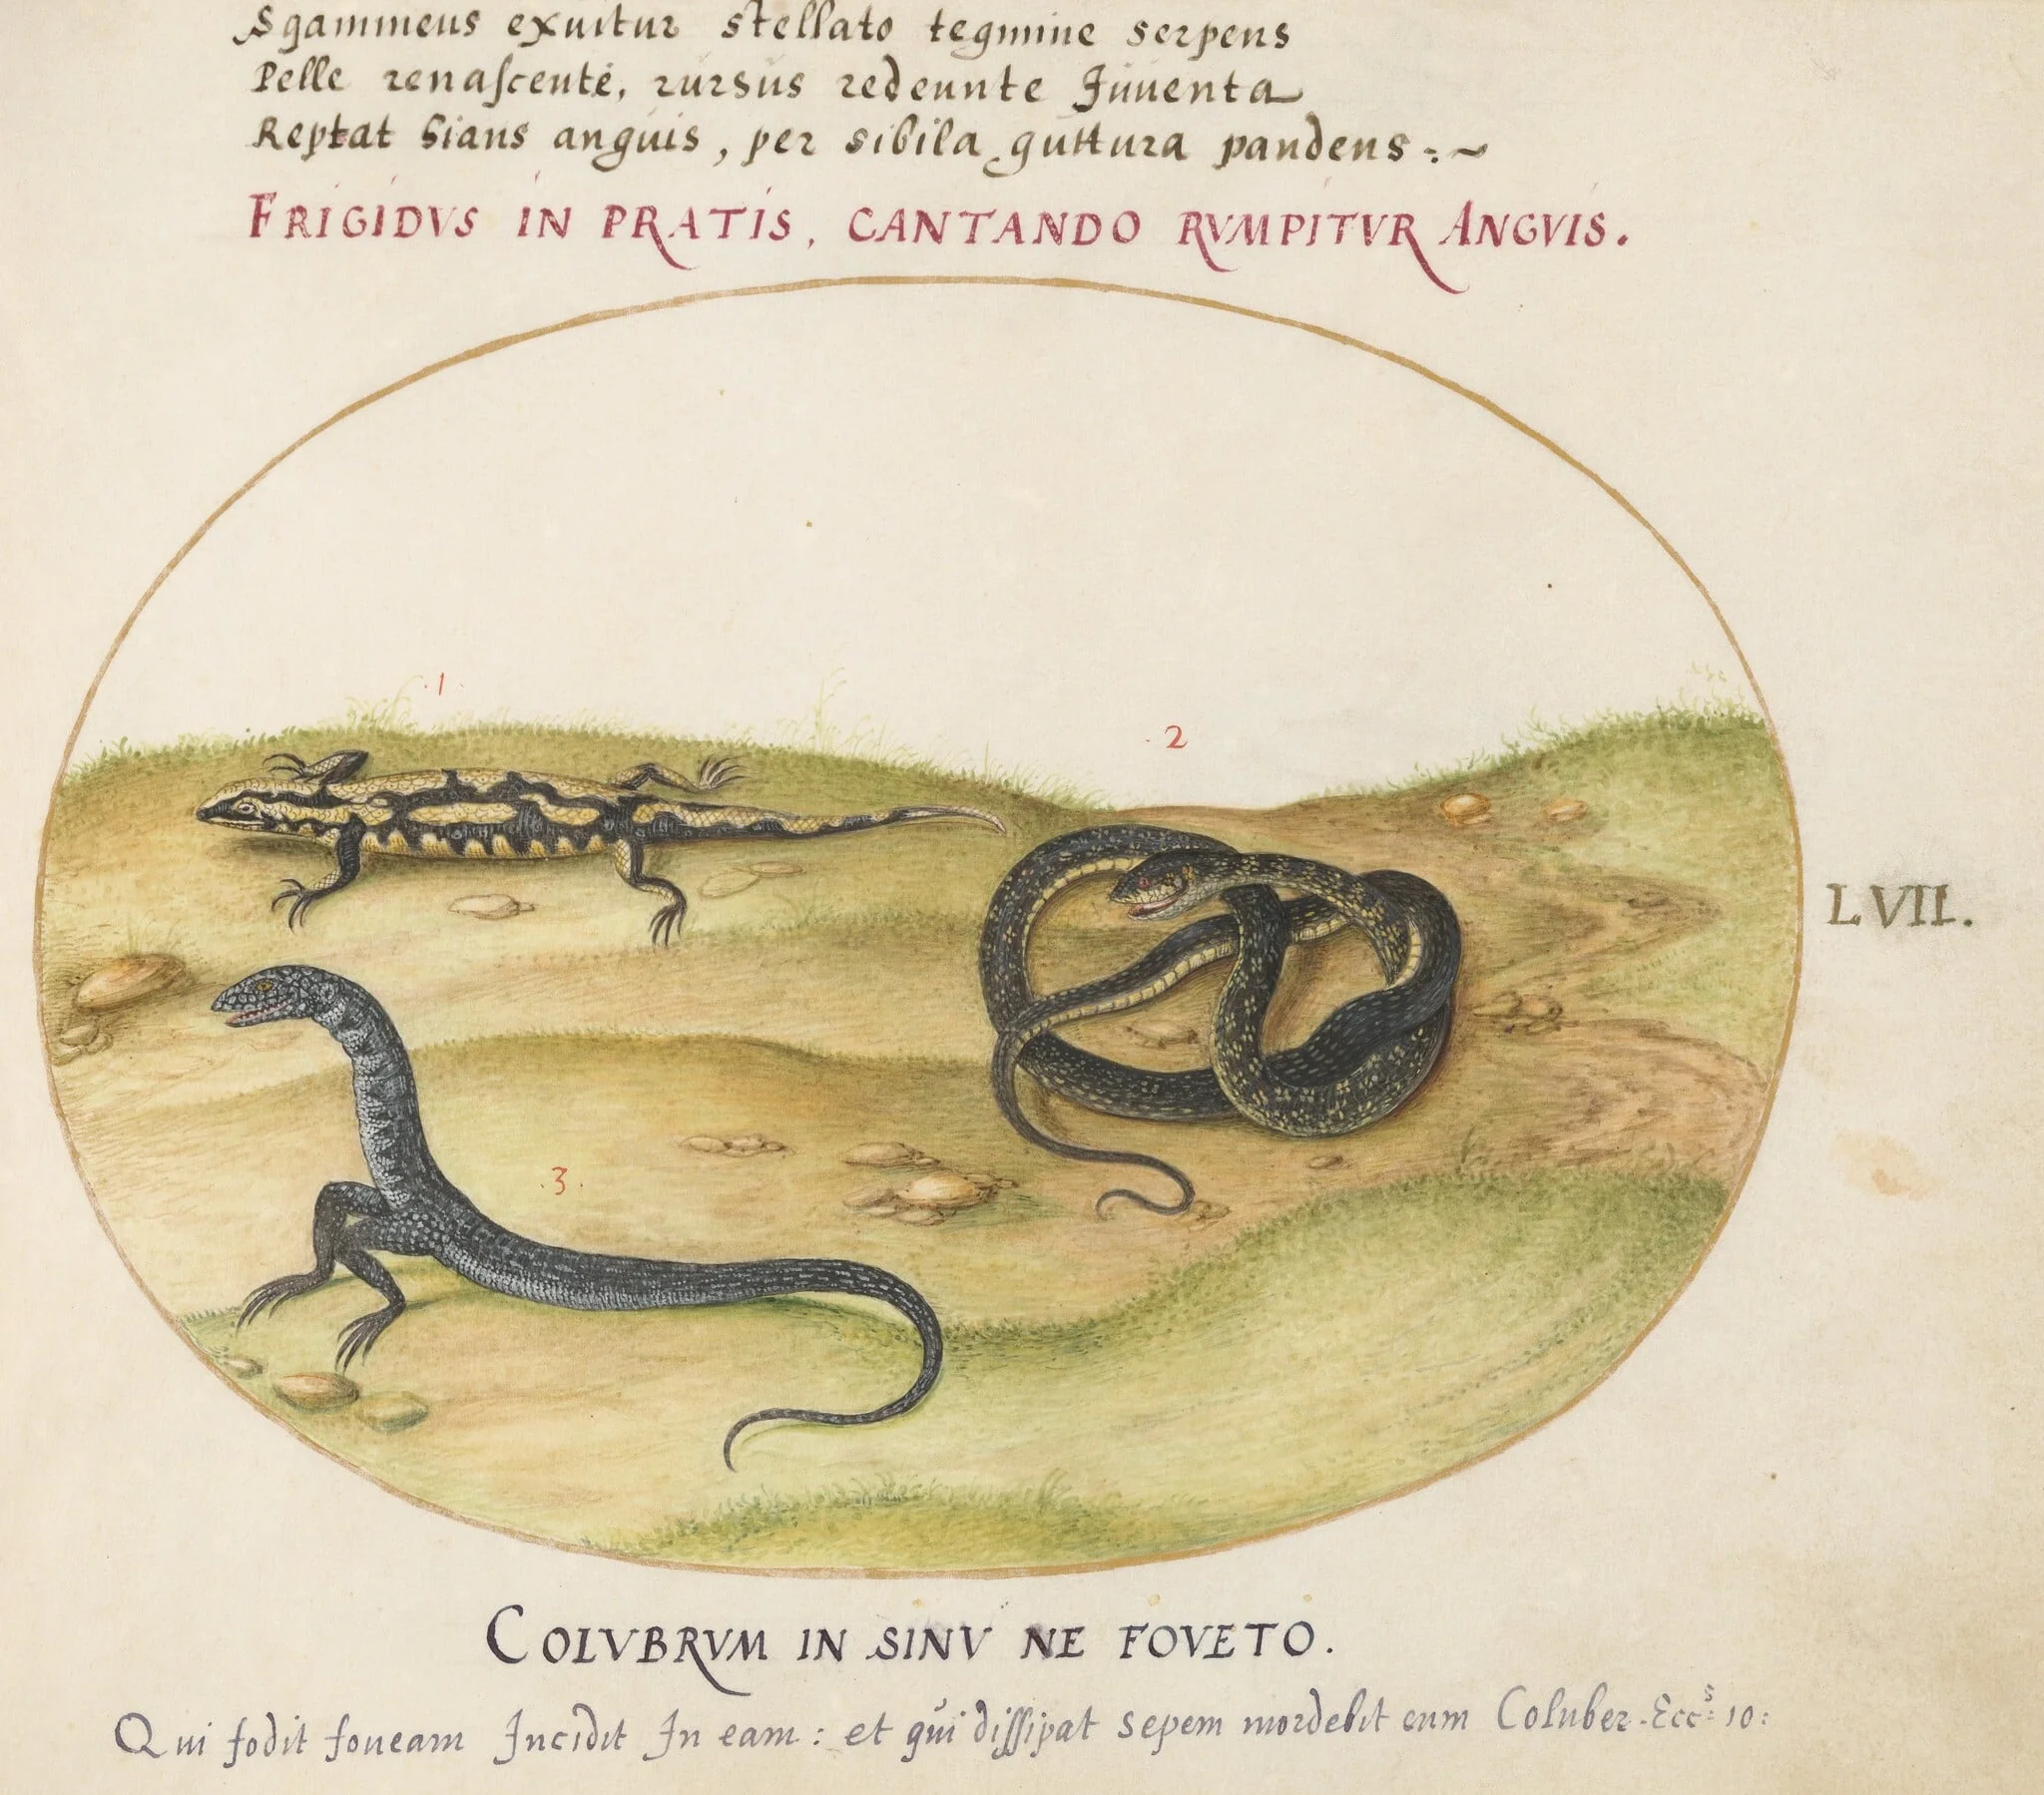 Sgammeus exuitur stellato tegmine serpens
Pelle renaſcente, rursus redeunte Juuenta
Reptat hians anguis, per sibila guttura pandens
FRIGIDVS IN PRATIS, CANTANDO RVMPITVR ANGVIS.
1
2
LVII.
3
COLVBRVM IN SINV NE FOVETO.
Qui fodit foueam Incidit In eam: et qui diſſipat sepem mordebit eum Coluber. Eccs: 10: